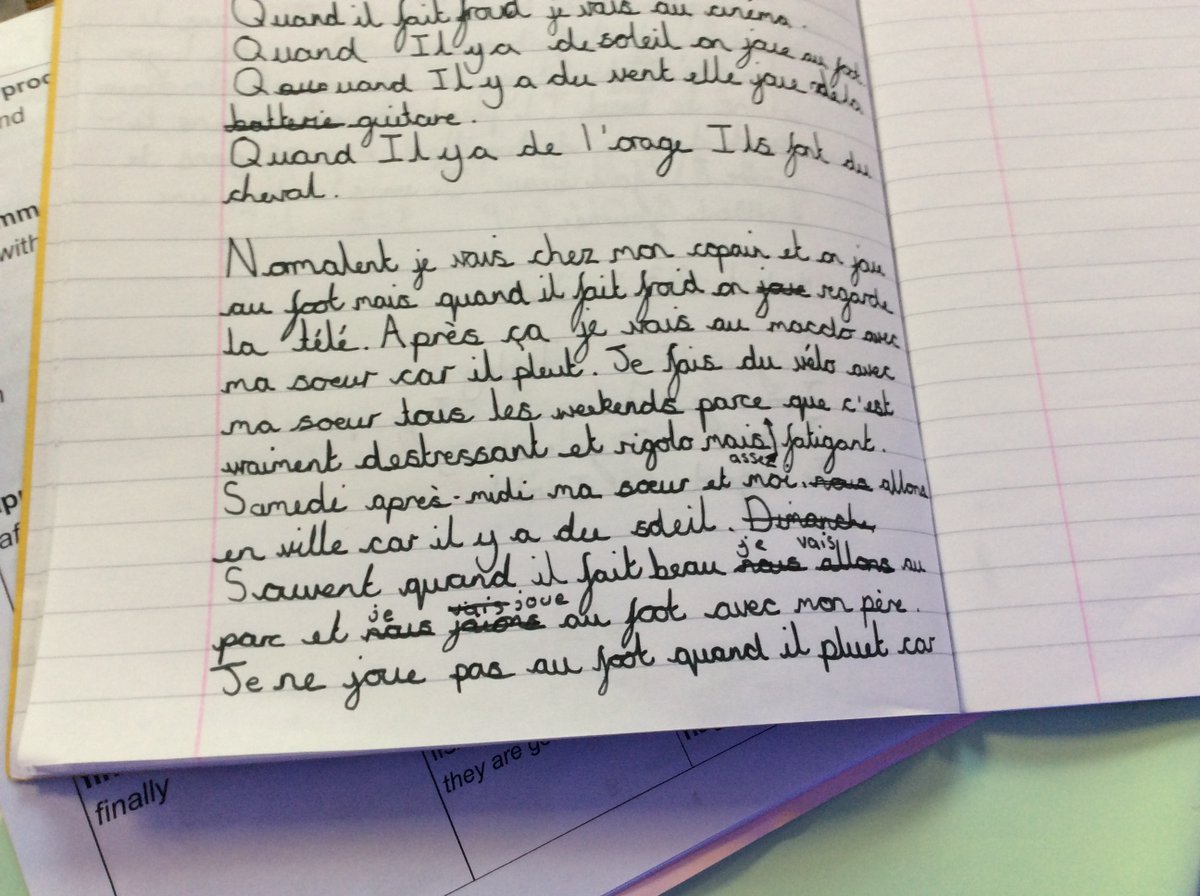 Quand il fait froid je vais au cinéma.
Quand Il y a de soleil on joue au foot
Quand Il y a du vent elle joue de la
batterie guitare.
Quand Il y a de l'orage Ils font du
cheval.
Nomalent je vais chez mon copain et on joue
au foot mais quand il fait froid on joue regarde
la télé. Après ça je vais au macdo avec
ma soeur car il pleut. Je fais du vélo avec
ma soeur tous les weekends parce que c'est
vraiment destressant et rigolo mais fatigant.
assez
Samedi après-midi ma soeur et moi. nous allons
en ville car il y a du soleil. Dimanche
je vais
Souvent quand il fait beau nous allons au
je vais joue
parc et nous jouons au foot avec mon père.
Je ne joue pas au foot quand il pluet car
proc
nd
mm
with
af
finally
they are